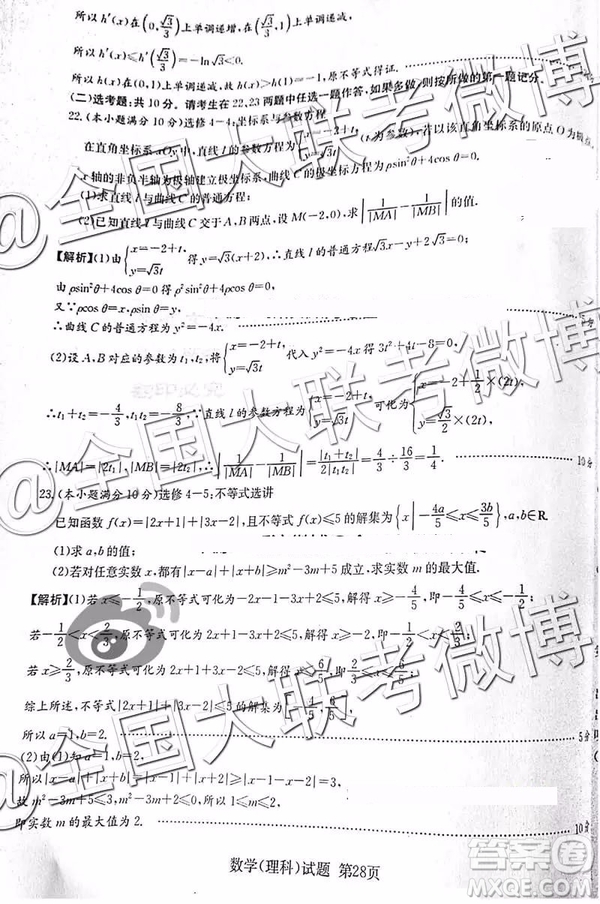 所以h′(x)在(0,√3/3)上单调递增,在(√3/3,1)上单调递减,
所以h′(x)≤h′(√3/3)=-ln√3<0.
所以h(x)在(0,1)上单调递减,故h(x)>h(1)=-1,原不等式得证.
(二)选考题:共10分。请考生在22,23两题中任选一题作答,如果多做,则按所做的第一题记分.
22.(本小题满分10分)选修4-4:坐标系与参数方程
在直角坐标系xOy中,直线l的参数方程为{x=-2+t, y=√3t (t为参数),若以该直角坐标系的原点O为极点,
x轴的非负半轴为极轴建立极坐标系,曲线C的极坐标方程为ρsin²θ+4cosθ=0.
(1)求直线l与曲线C的普通方程;
(2)已知直线l与曲线C交于A,B两点,设M(-2,0),求|1/|MA|-1/|MB||的值.
【解析】(1)由{x=-2+t, y=√3t 得y=√3(x+2),∴直线l的普通方程√3x-y+2√3=0;
由ρsin²θ+4cosθ=0得ρ²sin²θ+4ρcosθ=0,
又∵ρcosθ=x,ρsinθ=y,
∴曲线C的普通方程为y²=-4x. 5分
(2)设A,B对应的参数为t₁,t₂,将{x=-2+t, y=√3t 代入y²=-4x得3t²+4t-8=0,
∴t₁+t₂=-4/3,t₁t₂=-8/3.∵直线l的参数方程为{x=-2+t, y=√3t 可化为{x=-2+1/2×(2t), y=√3/2×(2t),
∴|MA|=|2t₁|,|MB|=|2t₂|,∴|1/|MA|-1/|MB||=|t₁+t₂|/(2|t₁t₂|)=4/3÷16/3=1/4. 10分
23.(本小题满分10分)选修4-5:不等式选讲
已知函数f(x)=|2x+1|+|3x-2|,且不等式f(x)≤5的解集为{x|-4a/5≤x≤3b/5},a,b∈R.
(1)求a,b的值;
(2)若对任意实数x,都有|x-a|+|x+b|≥m²-3m+5成立,求实数m的最大值.
【解析】(1)若x≤-1/2,原不等式可化为-2x-1-3x+2≤5,解得x≥-4/5,即-4/5≤x≤-1/2;
若-1/2<x<2/3,原不等式可化为2x+1-3x+2≤5,解得x≥-2,即-1/2<x<2/3;
若x≥2/3,原不等式可化为2x+1+3x-2≤5,解得x≤6/5,即2/3≤x≤6/5;
综上所述,不等式|2x+1|+|3x-2|≤5的解集为[-4/5,6/5],
所以a=1,b=2. 5分
(2)由(1)知a=1,b=2,
所以|x-a|+|x+b|=|x-1|+|x+2|≥|x-1-x-2|=3,
故m²-3m+5≤3,m²-3m+2≤0,所以1≤m≤2,
即实数m的最大值为2. 10分
数学(理科)试题 第28页
@全国大联考微博
@全国大联考微博
@全国大联考微博
答案圈